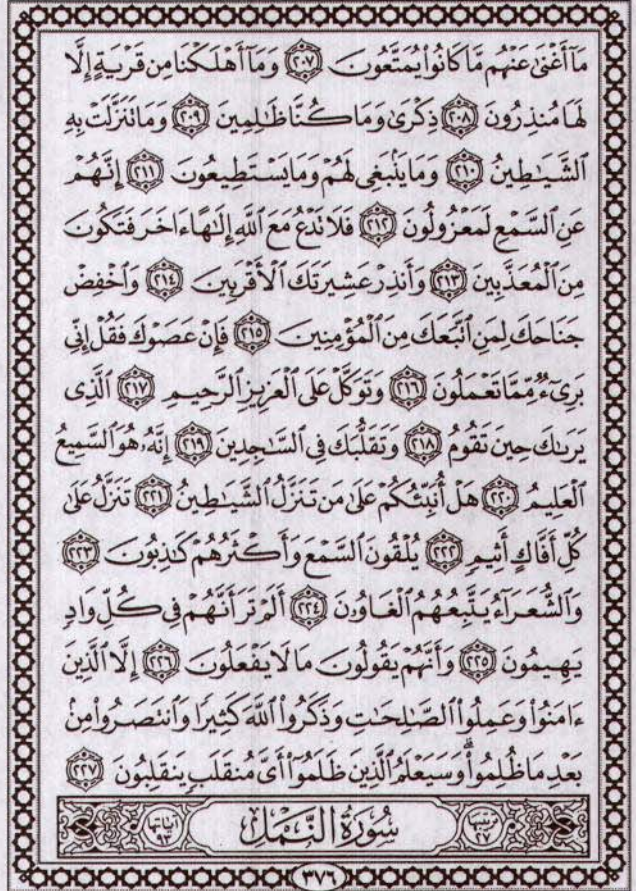 مَآ أَغْنَىٰ عَنْهُم مَّا كَانُوا۟ يُمَتَّعُونَ ٢٠٧ وَمَآ أَهْلَكْنَا مِن قَرْيَةٍ إِلَّا
لَهَا مُنذِرُونَ ٢٠٨ ذِكْرَىٰ وَمَا كُنَّا ظَـٰلِمِينَ ٢٠٩ وَمَا تَنَزَّلَتْ بِهِ
ٱلشَّيَـٰطِينُ ٢١٠ وَمَا يَنۢبَغِى لَهُمْ وَمَا يَسْتَطِيعُونَ ٢١١ إِنَّهُمْ
عَنِ ٱلسَّمْعِ لَمَعْزُولُونَ ٢١٢ فَلَا تَدْعُ مَعَ ٱللَّهِ إِلَـٰهًا ءَاخَرَ فَتَكُونَ
مِنَ ٱلْمُعَذَّبِينَ ٢١٣ وَأَنذِرْ عَشِيرَتَكَ ٱلْأَقْرَبِينَ ٢١٤ وَٱخْفِضْ
جَنَاحَكَ لِمَنِ ٱتَّبَعَكَ مِنَ ٱلْمُؤْمِنِينَ ٢١٥ فَإِنْ عَصَوْكَ فَقُلْ إِنِّى
بَرِىٓءٌ مِّمَّا تَعْمَلُونَ ٢١٦ وَتَوَكَّلْ عَلَى ٱلْعَزِيزِ ٱلرَّحِيمِ ٢١٧ ٱلَّذِى
يَرَىٰكَ حِينَ تَقُومُ ٢١٨ وَتَقَلُّبَكَ فِى ٱلسَّـٰجِدِينَ ٢١٩ إِنَّهُۥ هُوَ ٱلسَّمِيعُ
ٱلْعَلِيمُ ٢٢٠ هَلْ أُنَبِّئُكُمْ عَلَىٰ مَن تَنَزَّلُ ٱلشَّيَـٰطِينُ ٢٢١ تَنَزَّلُ عَلَىٰ
كُلِّ أَفَّاكٍ أَثِيمٍ ٢٢٢ يُلْقُونَ ٱلسَّمْعَ وَأَكْثَرُهُمْ كَـٰذِبُونَ ٢٢٣
وَٱلشُّعَرَآءُ يَتَّبِعُهُمُ ٱلْغَاوُۥنَ ٢٢٤ أَلَمْ تَرَ أَنَّهُمْ فِى كُلِّ وَادٍ
يَهِيمُونَ ٢٢٥ وَأَنَّهُمْ يَقُولُونَ مَا لَا يَفْعَلُونَ ٢٢٦ إِلَّا ٱلَّذِينَ
ءَامَنُوا۟ وَعَمِلُوا۟ ٱلصَّـٰلِحَـٰتِ وَذَكَرُوا۟ ٱللَّهَ كَثِيرًا وَٱنتَصَرُوا۟ مِنۢ
بَعْدِ مَا ظُلِمُوا۟ ۗ وَسَيَعْلَمُ ٱلَّذِينَ ظَلَمُوٓا۟ أَىَّ مُنقَلَبٍ يَنقَلِبُونَ ٢٢٧
ترتيبها ٢٧ سُورَةُ النَّمْلِ آياتها ٩٣
٣٧٦